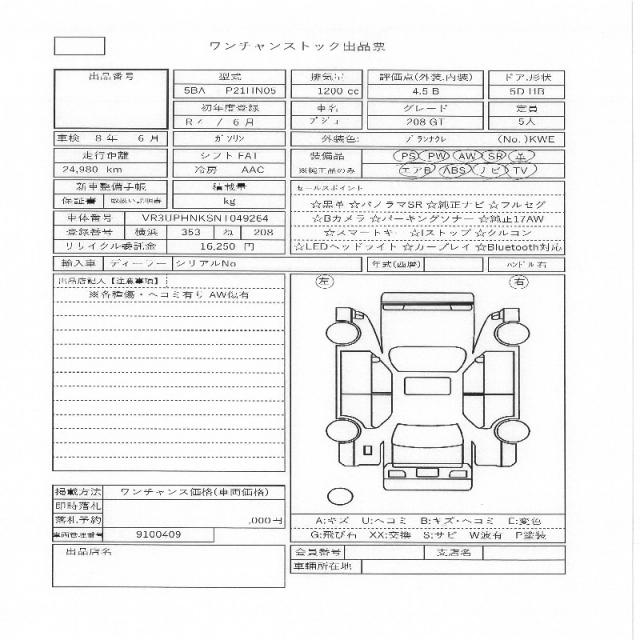 ワンチャンストック出品票
出品番号 型式 排気量 評価点(外装.内装) ドア.形状
5BA P21HN05 1200 cc 4.5 B 5D HB
初年度登録 車名 グレード 定員
6月 プジョ 208 GT 5人
車検 8年 6月 ガソリン 外装色: (No.)KWE
走行距離 シフト FA1 装備品 PS PW AW SR 革
24,980 km 冷房 AAC ※純正品のみ エアB ABS ナビ TV
新車整備手帳 積載量 セールスポイント
保証書 取扱い説明書 kg ☆黒革 ☆パノラマSR ☆純正ナビ ☆フルセグ
車体番号 VR3UPHNKSN1049264 ☆Bカメラ ☆パーキングソナー ☆純正17AW
登録番号 横浜 353 ね 208 ☆スマートキー ☆Iストップ ☆クルコン
リサイクル委託金 16,250 円 ☆LEDヘッドライト ☆カープレイ ☆Bluetooth対応
輸入車 ディーラー シリアルNo 年式(西暦) ハンドル 右
出品店記入【注意事項】 左 右
※各種傷・ヘコミ有り AW傷有
掲載方法 ワンチャンス価格(車両価格)
即時落札
落札予約 ,000円 A:キズ U:ヘコミ B:キズ・ヘコミ C:変色
車両管理番号 9100409 G:飛び石 XX:交換 S:サビ W波有 P塗装
出品店名 会員番号 支店名
車輌所在地